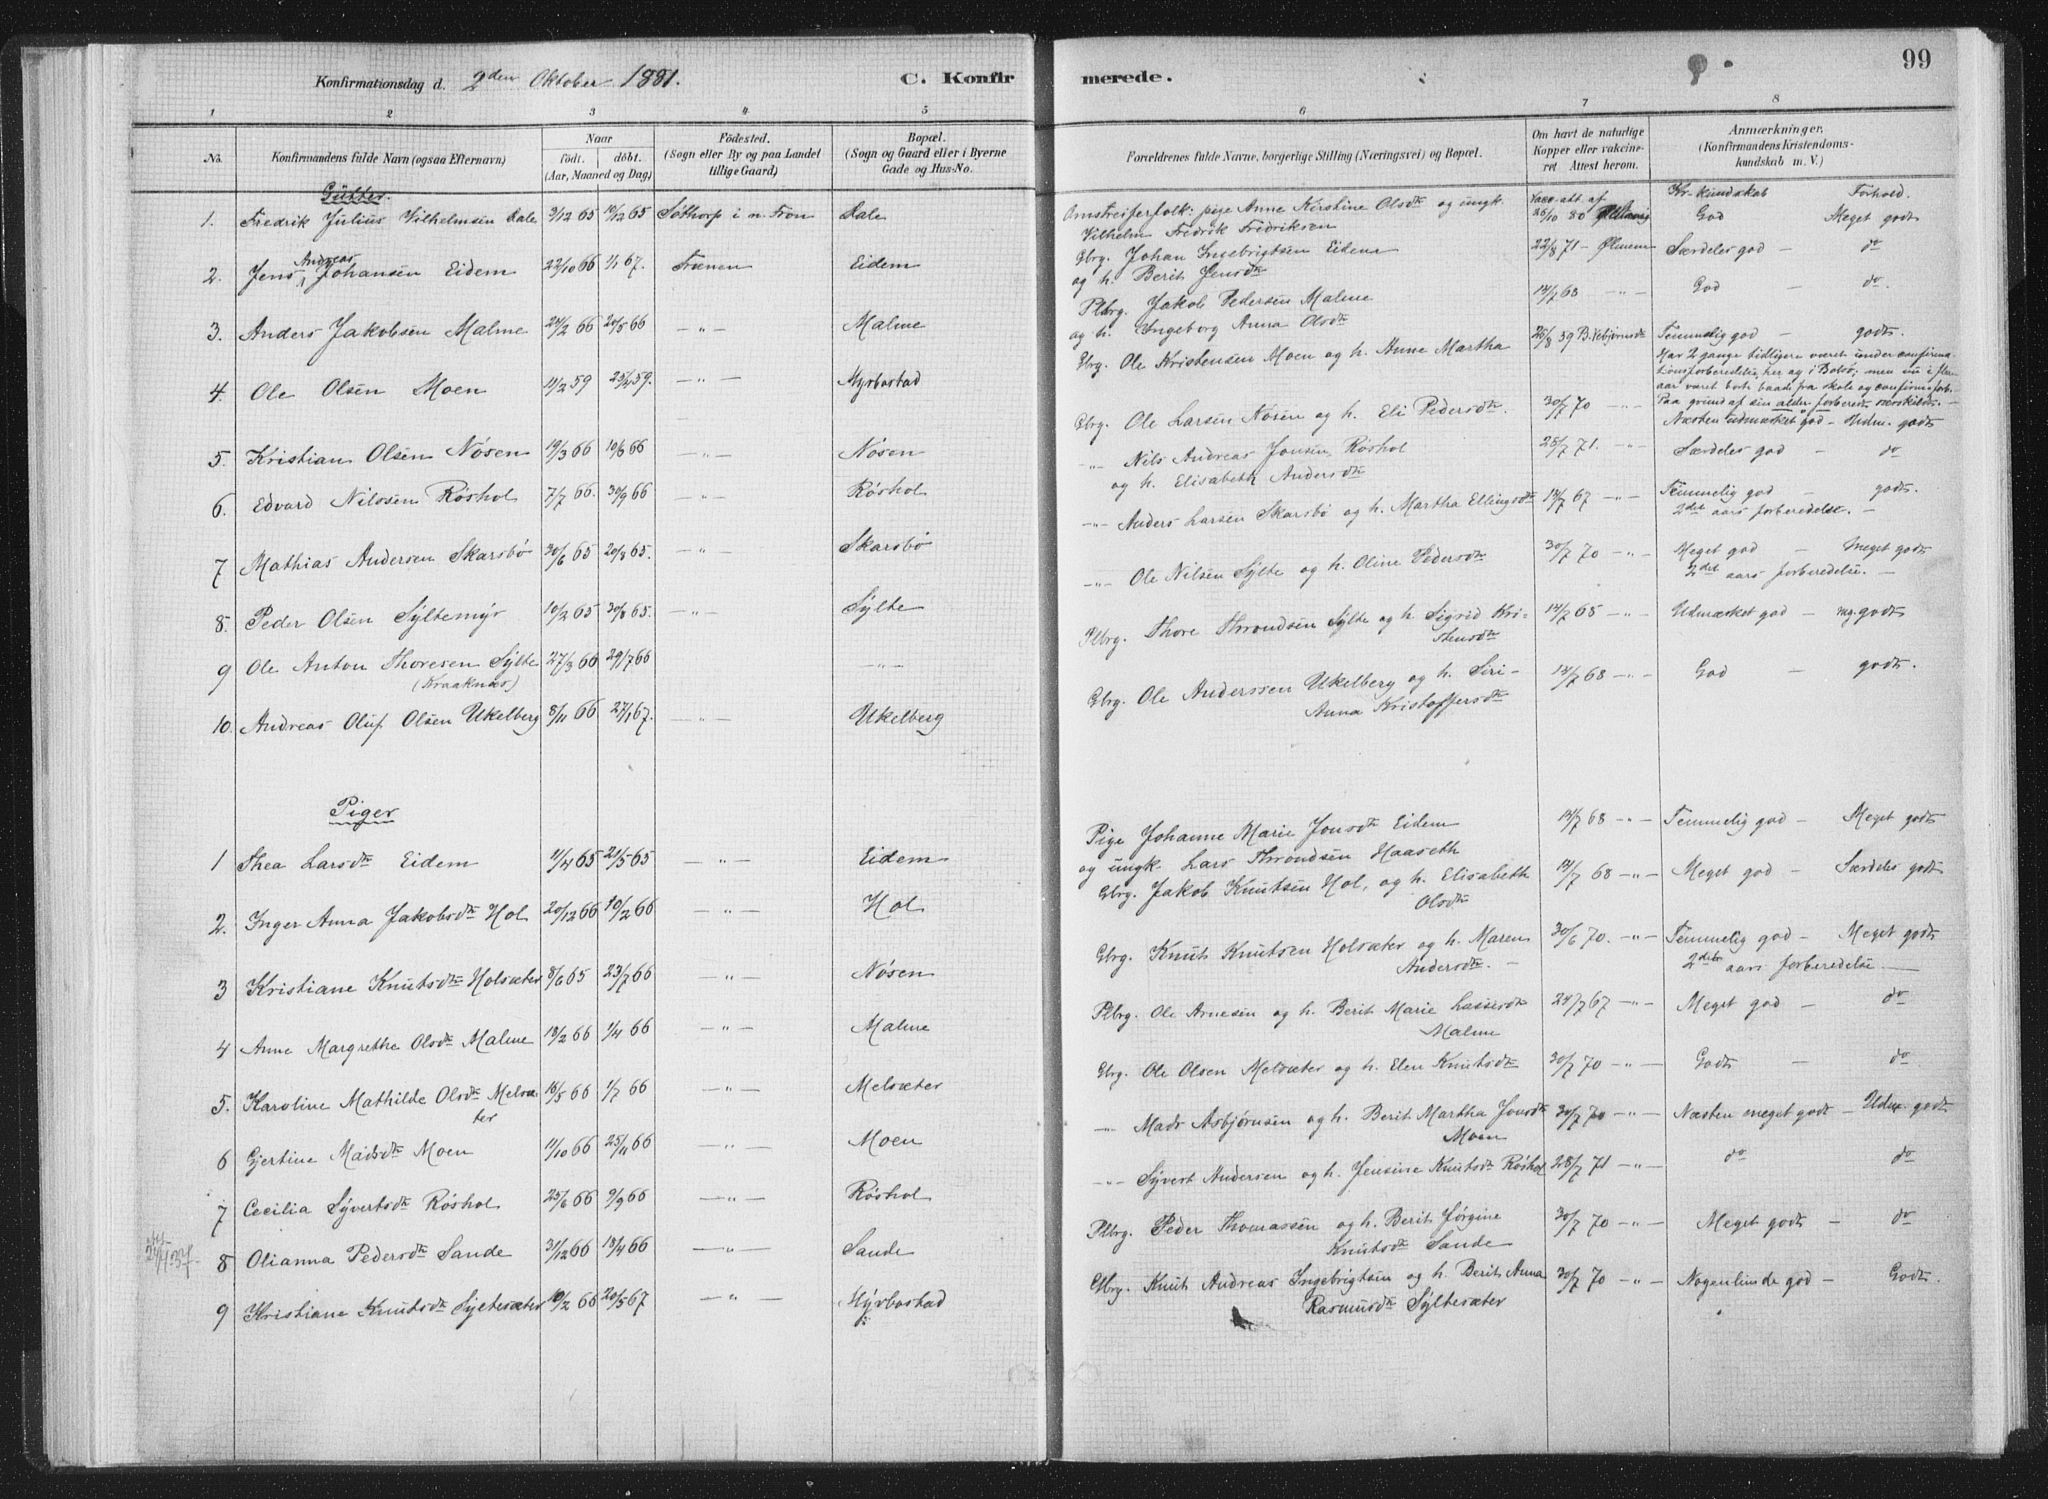 Konfirmationsdag d. 2den Oktober 1881. C. Konfirmerede. 99
1 2 3 4 5 6 7 8
No. Konfirmandens fulde Navn (ogsaa Efternavn) Naar födt. döbt. (Aar, Maaned og Dag) Födested. (Sogn eller By og paa Landet tillige Gaard) Bopæl. (Sogn og Gaard eller i Byerne Gade og Hus-No. Forældrenes fulde Navne, borgerlige Stilling (Næringsvei) og Bopæl. Om havt de naturlige Kopper eller vaccineret Attest herom. Anmærkninger. (Konfirmandens Kristendomskundskab m. V.)
Gutter. Kr-kundskab Forhold.
1. Fredrik Julius Vilhelmsen Dale 9/12 65 10/12 65 i n. Fron Dale Omstreiferfolk: pige Anne Kirstine Olsdtr og ungk. Vacc. att. af 25/10 80 God Meget godt
Vilhelm Fredrik Fredriksen
2. Jens Andreas Johansen Eidem 22/10 66 1/1 67. Frænen Eidem Gbrg. Johan Ingebrigtsen Eidem 22/8 71 - Særdeles god - do
og h. Berit Jensdtr
3. Anders Jakobsen Malme 24/2 66 20/5 66 - " - Malme Plbrg. Jakob Pedersen Malme 14/7 68 - " - God - do.
og h. Ingeborg Anna Olsdtr
4. Ole Olsen Moen 11/2 59 25/4 59. - " - Myrbostad Gbrg. Ole Kristensen Moen og h. Anne Martha 26/8 59 Temmelig god - godt.
Har 2 gange tidligere været under confirma
tionsforberedelse, her og i Bolsø; men nu i flere
aar været borte baade fra skole og confirm.forb.
Paa grund af sin alder forberedt særskildt. -
5. Kristian Olsen Nøsen 19/3 66 10/6 66 - " - Nøsen Gbrg. Ole Larsen Nøsen og h. Eli Pedersdtr. 30/7 70 - " - Næsten udmærket god - Udm. godt
6. Edvard Nilssen Røshol 7/7 66. 30/9 66 - " - Røshol - " - Nils Andreas Jonsen Røshol 25/7 71. - " - Særdeles god - do
og h. Elisabeth Andersdtr
7 Mathias Andersen Skarsbø 30/6 65 20/8 65. - " - Skarsbø - " - Anders Larsen Skarsbø og h. Martha Ellingsdtr 14/7 67 - " - Temmelig god - godt.
2det aars forberedelse. -
8. Peder Olsen Syltemyr 10/2 65 30/8 65. - " - Sylte - " - Ole Nilsen Sylte og h. Oline Pedersdtr 30/7 70 - " - Meget god - Meget godt
2det aars forberedelse. -
9 Ole Anton Thoresen Sylte 27/3 66 29/7 66 - " - Plbrg. Thore Throndsen Sylte og h. Sigrid Kri- 14/7 68 - " - Udmærket god - mg. godt
(Kraaknæs) stensdtr
10. Andreas Oluf Olsen Ukelberg 8/11 66 27/1 67. - " - Ukelberg Gbrg. Ole Anderssen Ukelberg og h. Siri- 14/7 68 - " - God - godt.
Anna Kristoffersdtr
Piger
1 Thea Larsdtr Eidem 11/4 65 21/5 65 - " - Eidem Pige Johanne Marie Jonsdtr Eidem 14/7 68 - " - Temmelig god - Meget godt
og ungk. Lars Throndsen Haaseth
2. Inger Anna Jakobsdtr Hol 20/12 66 10/2 66 - " - Hol Gbrg. Jakob Knutsen Hol, og h. Elisabeth 14/7 68 - " - Meget god - Særdeles godt
Olsdtr
3 Kristiane Knutsdtr Holsæter 8/6 65 23/7 66 - " - Nøsen Gbrg. Knut Knutsen Holsæter og h. Maren 30/6 70. - " - Temmelig god - Meget godt
Andersdtr. - 2det aars forberedelse -
4 Anne Margrethe Olsdtr Malme 18/2 66 1/4 66 - " - Malme Plbrg. Ole Arnesen og h. Berit Marie Lassesdtr 24/7 67 - " - Meget god - do
Malme
5. Karoline Mathilde Olsdtr Melsæ- 16/5 66 1/7 66 - " - Melsæter Gbrg. Ole Olsen Melsæter og h. Elen Knutsdtr 30/7 70 - " - Godt - do
ter
6 Gjertine Madsdtr Moen 11/10 66 25/11 66 - " - Moen - " - Mads Asbjørnsen og h. Berit Martha Jonsdtr 30/7 70 - " - Næsten meget godt - Udm. godt
Moen
7 Cecilia Syvertsdtr Røshol 25/6 66 9/9 66 - " - Røshol - " - Syvert Andersen og h. Jensine Knutsdtr Røshol 28/7 71 - " - do do
8 Olianna Pedersdtr Sande 31/12 66 18/4 66 - " - Sande Plbrg. Peder Thomassen og h. Berit Jørgine 30/7 70 - " - Meget godt - do
Knutsdtr Sande
9 Kristiane Knutsdtr Syltesæter 10/2 66 20/5 67 - " - Myrbostad Gbrg. Knut Andreas Ingebrigtsen og h. Berit Anna 30/7 70 - " - Nogenlunde god - Godt.
Rasmusdtr Syltesæter